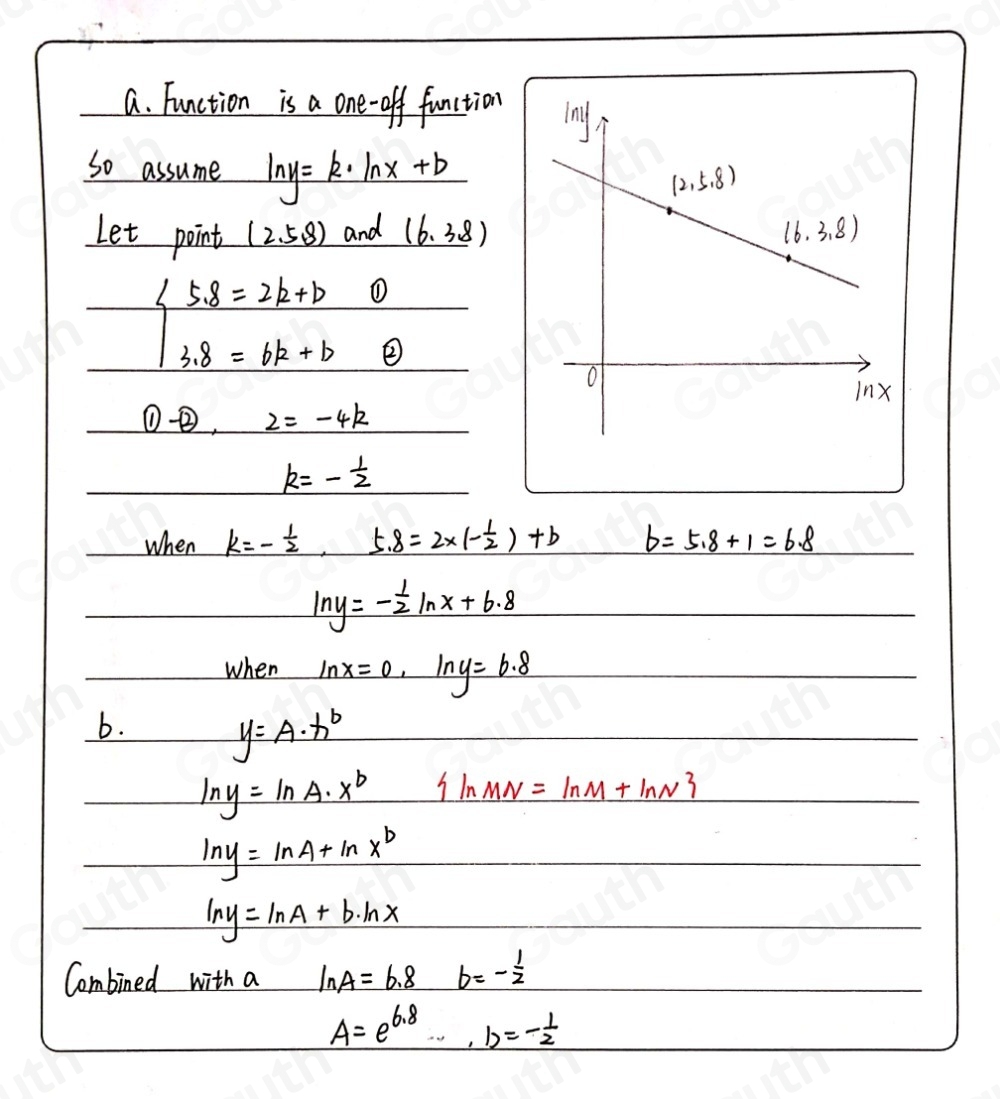 a. Function is a one-off function
So assume lny = k · lnx + b
Let point (2.5.8) and (6. 3.8)
5.8 = 2k + b ①
3.8 = 6k + b ②
① - ②, 2 = -4k
k = -1/2
when k = -1/2, 5.8 = 2×(-1/2) + b b = 5.8 + 1 = 6.8
lny = -1/2 lnx + 6.8
when lnx = 0, lny = 6.8
b. y = A · x^b
lny = ln A · x^b { ln MN = lnM + lnN }
lny = lnA + ln x^b
lny = lnA + b·lnx
Combined with a lnA = 6.8 b = -1/2
A = e^6.8 ..., b = -1/2
lny
(2, 5.8)
(6. 3.8)
0
lnx
Gauth